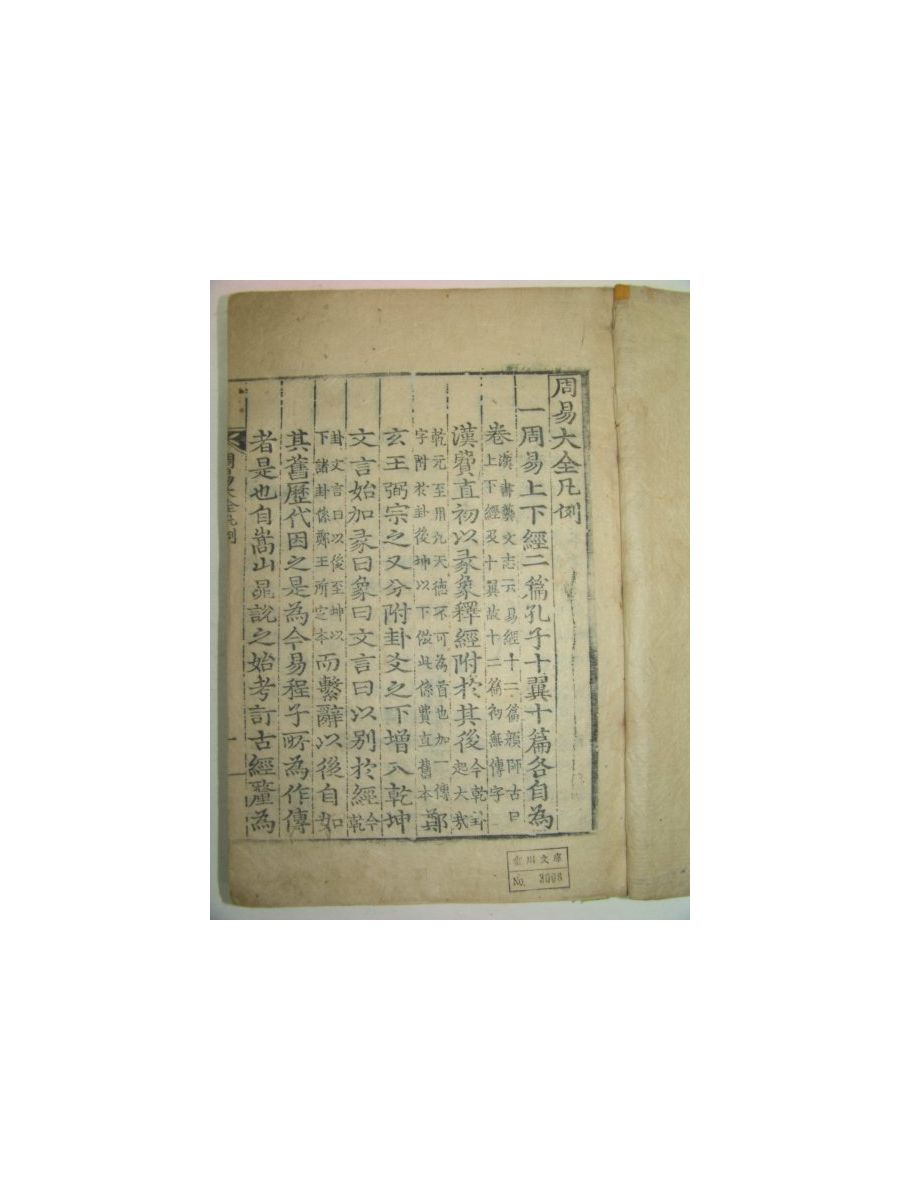 周易大全凡例
一周易上下經二篇孔子十翼十篇各自為
卷漢書藝文志云易經十二篇顔師古曰上下經及十翼故十二篇初無傳字
漢費直初以彖象釋經附於其後今乾卦起大哉
乾元至用九天德不可為首也加一傳字附於卦後坤以下倣此係費直舊本鄭
玄王弼宗之又分附卦爻之下增入乾坤
文言始加彖曰象曰文言曰以別於經今乾
卦文言曰以後至坤以下諸卦係鄭王所定本而繫辭以後自如
其舊歷代因之是為今易程子所為作傳
者是也自嵩山晁說之始考訂古經釐為
周易大全凡例
一
文庫
No.